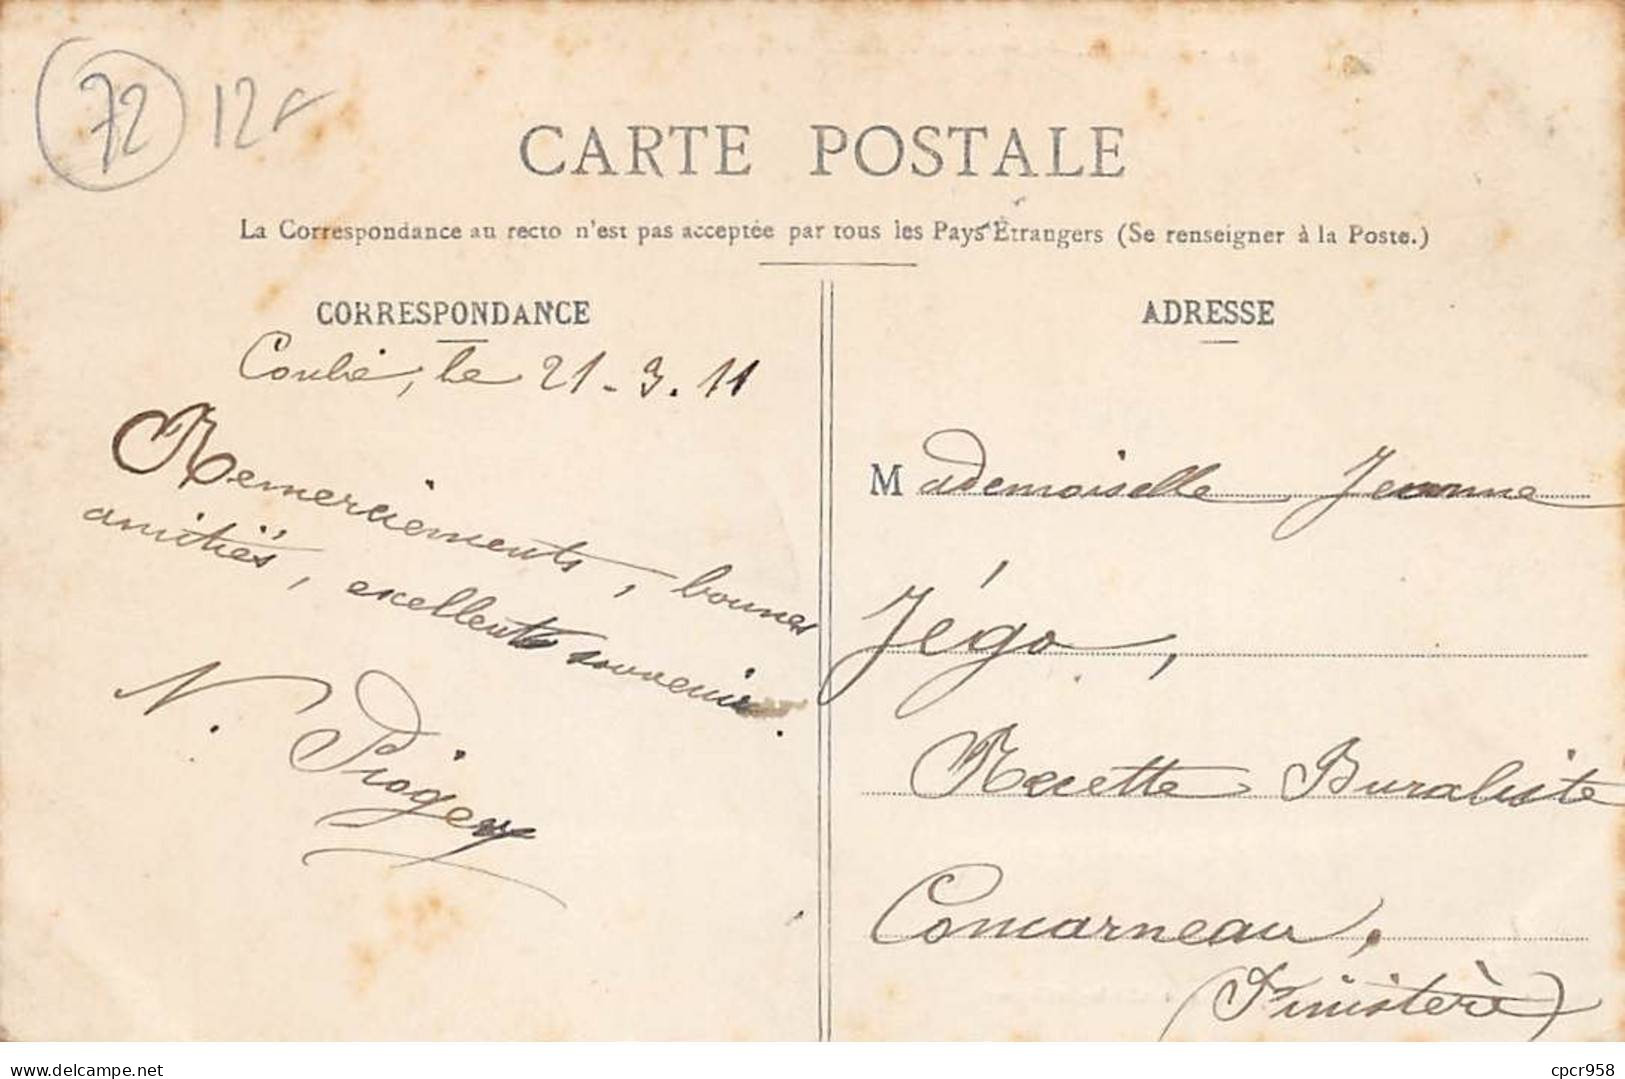 72 12F
CARTE POSTALE
La Correspondance au recto n'est pas acceptée par tous les Pays Étrangers (Se renseigner à la Poste.)
CORRESPONDANCE
Conlie, le 21-3.11
Remerciements, bonnes
amitiés, excellents souvenir.
N.
ADRESSE
Mademoiselle Jeanne
Jégo,
Recette Buraliste
Concarneau,
(Finistère)
delcampe.net
cpcr958